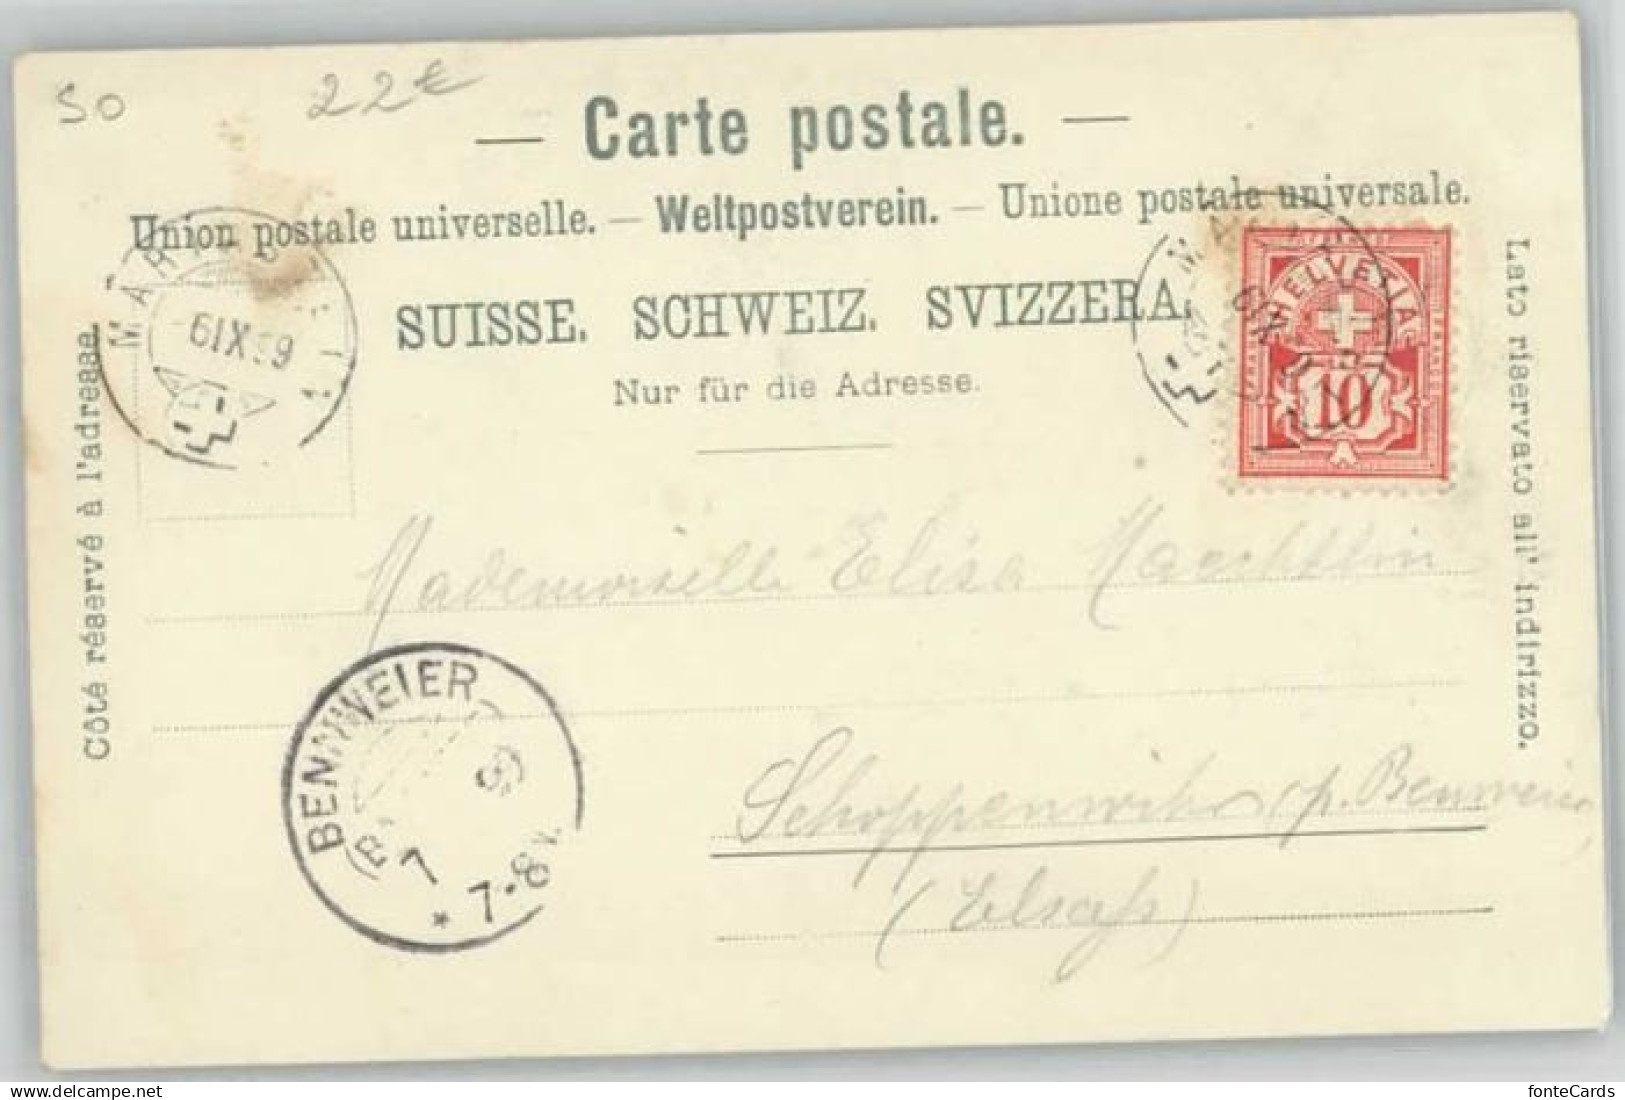 50 22€
— Carte postale. —
Union postale universelle. — Weltpostverein. — Unione postale universale.
SUISSE. SCHWEIZ. SVIZZERA.
Nur für die Adresse.
Côté réservé à l'adresse.
Lato riservato all' indirizzo.
6 IX 99
HELVETIA
FRANCO
10
Mademoiselle Elisa
Schoppenwihr p. Bennweier
(Elsass)
BENNWEIER
7
* 7-8
fonteCards